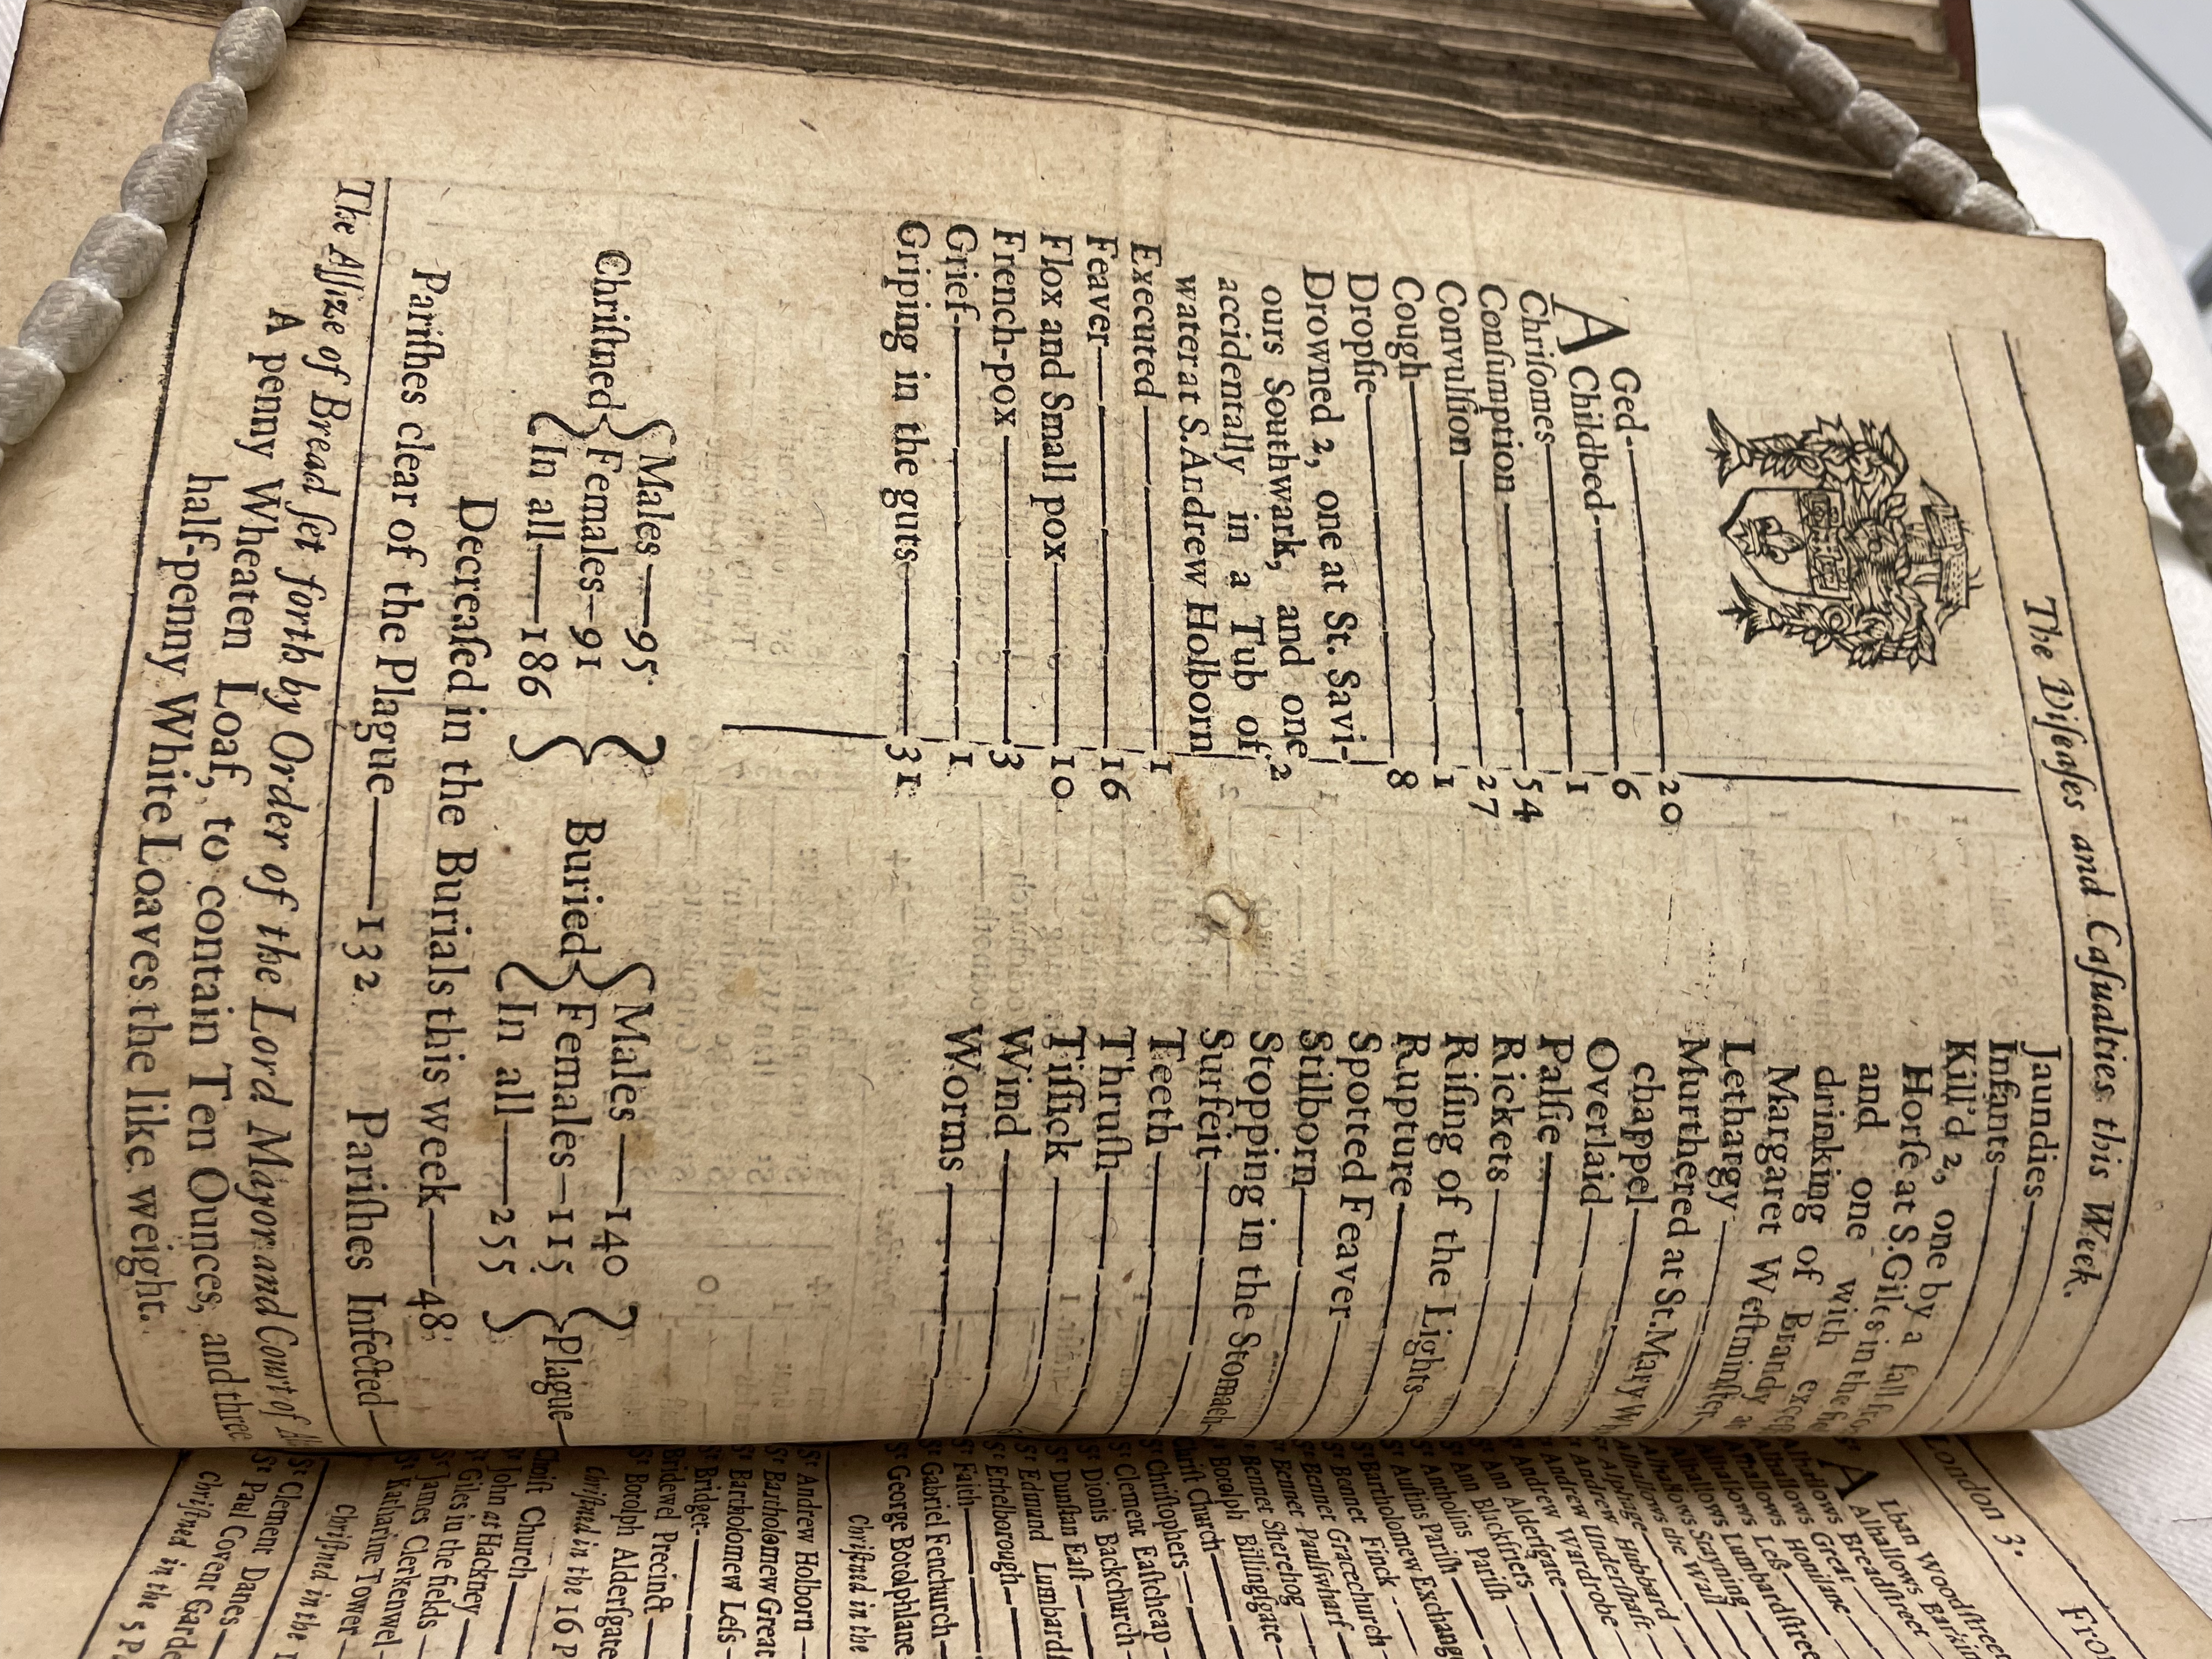 The Diſeaſes and Caſualties this Week.
AGed 20
Childbed 6
Chriſomes 1
Conſumption 54
Convulſion 27
Cough 1
Dropſie 8
Drowned 2, one at St. Savi-
ours Southwark, and one 2
accidentally in a Tub of
water at S. Andrew Holborn
Executed 1
Feaver 16
Flox and Small pox 10
French-pox 3
Grief 1
Griping in the guts 31
Jaundies
Infants
Kill'd 2, one by a fall
Horſe at S. Giles in the
and one with
drinking of Brandy at
Margaret Weſtminſter
Lethargy
Murthered at St. Mary
chappel
Overlaid
Palſie
Rickets
Riſing of the Lights
Rupture
Spotted Feaver
Stilborn
Stopping in the Stomach
Surfeit
Teeth
Thruſh
Tiſſick
Wind
Worms
Chriſtned { Males 95 Females 91 In all 186 }
Buried { Males 140 Females 115 In all 255 } Plague
Decreaſed in the Burials this week 48
Pariſhes clear of the Plague 132 Pariſhes Infected
The Aſſize of Bread ſet forth by Order of the Lord Mayor and Court of
A penny Wheaten Loaf, to contain Ten Ounces, and three
half-penny White Loaves the like weight.
London 3. 
ALban Woodſtreet
Alhallows Barkin
Alhallows Breadſtreet
Alhallows Great
Alhallows Honilane
Alhallows Leſs
Alhallows Lumbardſtree
Alhallows Stayning
Alhallows the Wall
St Alphage
St Andrew Hubbard
St Andrew Underſhaft
St Andrew Wardrobe
St Ann Alderſgate
St Ann Blackfriers
St Antholins Pariſh
St Auſtins Pariſh
St Bartholomew Exchang
St Bennet Finck
St Bennet Gracechurch
St Bennet Paulſwharf
St Bennet Sherehog
St Botolph Billingſgate
Chriſt Church
St Chriſtophers
St Clement Eaſtcheap
St Dionis Backchurch
St Dunſtan Eaſt
St Edmund Lumbardſ
St Ethelborough
St Faith
St Gabriel Fenchurch
St George Botolphlane
Chriſtned in the
St Andrew Holborn
St Bartholomew Great
St Bartholomew Leſs
St Bridget
Bridewel Precinct
St Botolph Alderſgate
Chriſtned in the 16 P
Chriſt Church
St John at Hackney
St Giles in the fields
St James Clerkenwel
St Katharine Tower
Chriſtned in the
St Clement Danes
St Paul Covent Garde
Chriſtned in the 5 P